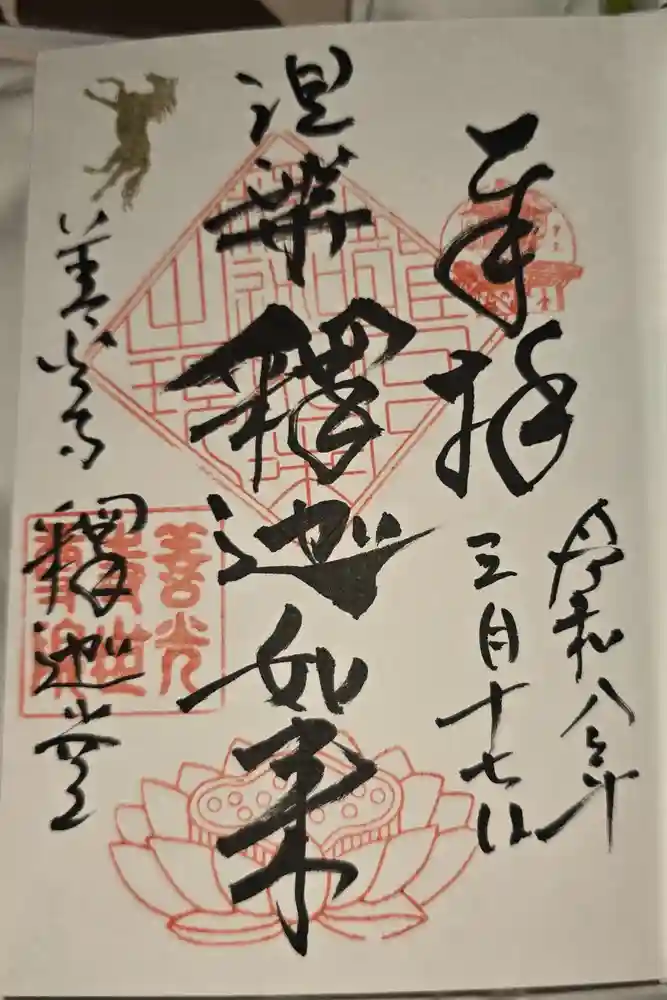 奉拝
令和八年
三月十七日
涅槃釋迦如来
善光寺 釋迦堂
善光